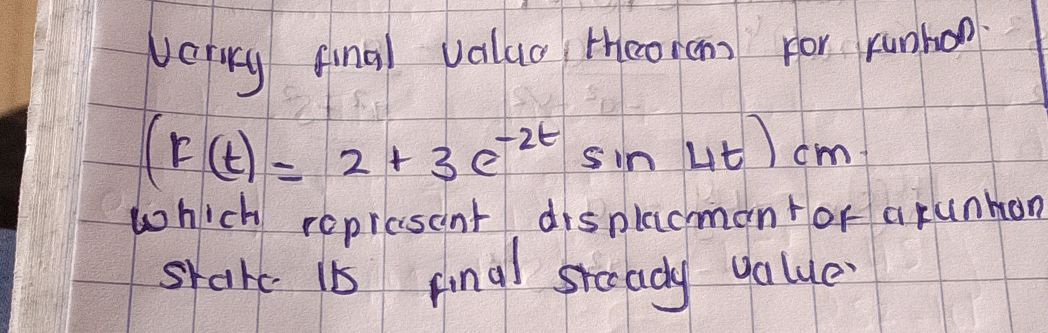 Verify final value theorem for funtion.
(F(t) = 2 + 3 e^-2t sin 4t) cm.
which represent displacment of a funtion
state its final steady value.